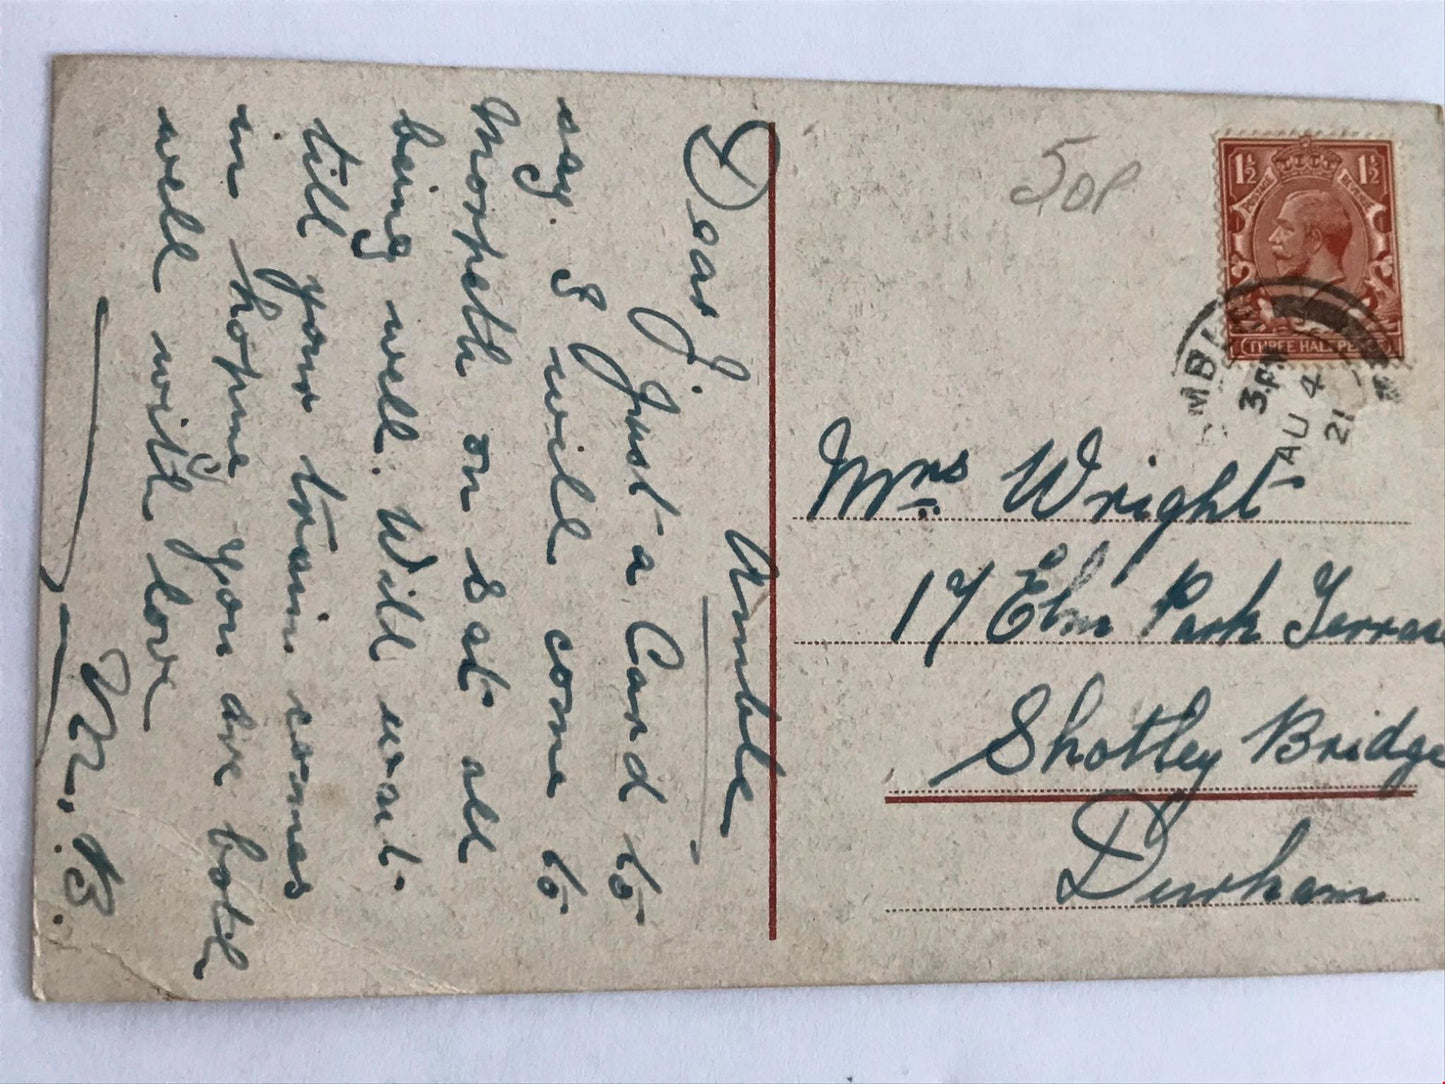 Amble
Dear J.
Just a Card to
say. I will come to
Morpeth on Sat all
being well. Will wait
till your train comes
in hoping you are both
well with love
M. B.
50P
1½ 1½
POSTAGE REVENUE
THREE HALFPENCE
MBL
3. PM
AU 4
21
Mrs Wright
17 Elm Park Terrac
Shotley Bridge
Durham